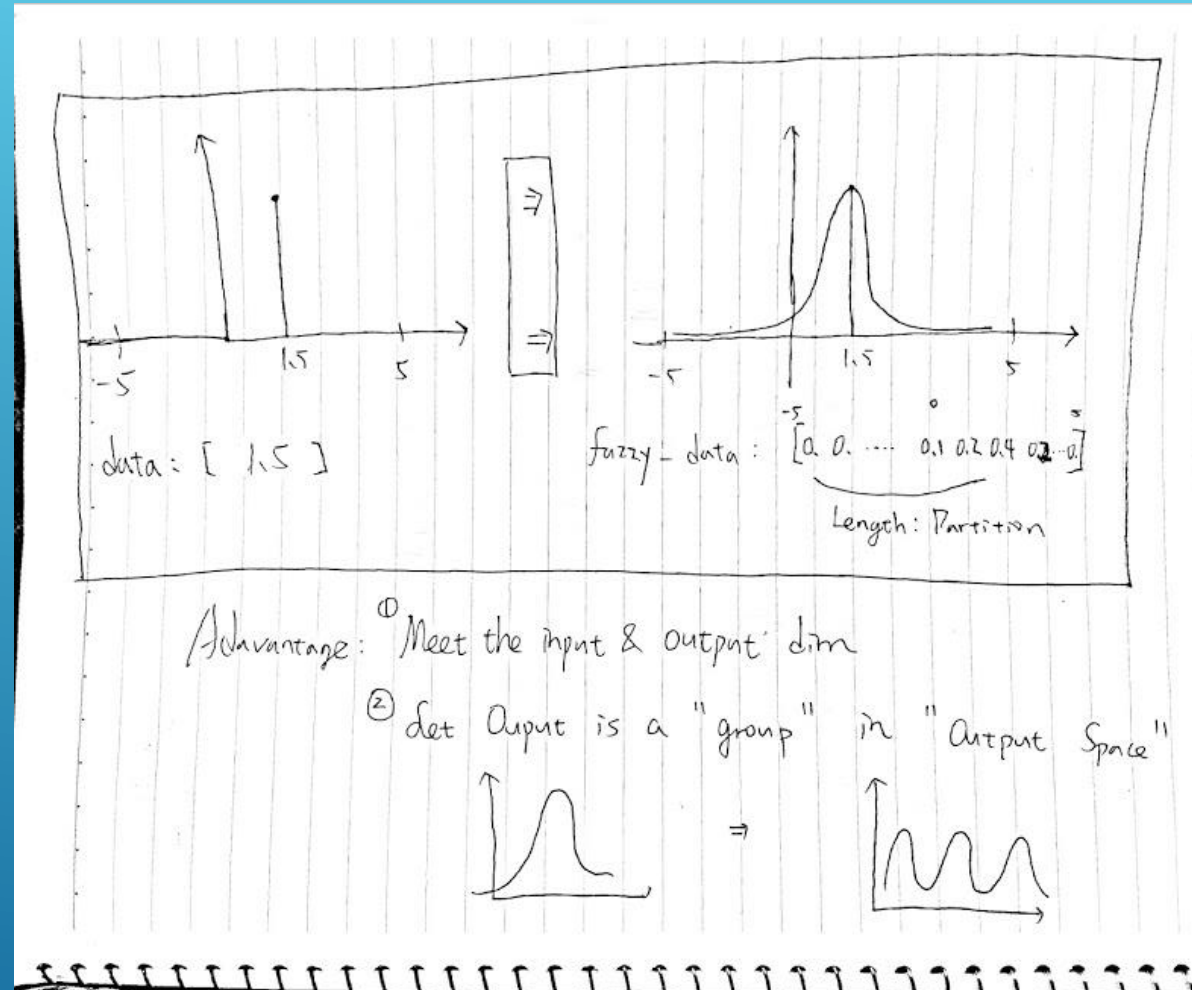 ⇒
⇒
-5 1.5 5
-5 1.5 5
data: [ 1.5 ]
-5 0 5
fuzzy_data: [0. 0. .... 0.1 0.2 0.4 0.2 ..0.]
Length: Partition
Adavantage: ① Meet the input & output dim
② Let Ouput is a "group" in "Output Space"
⇒